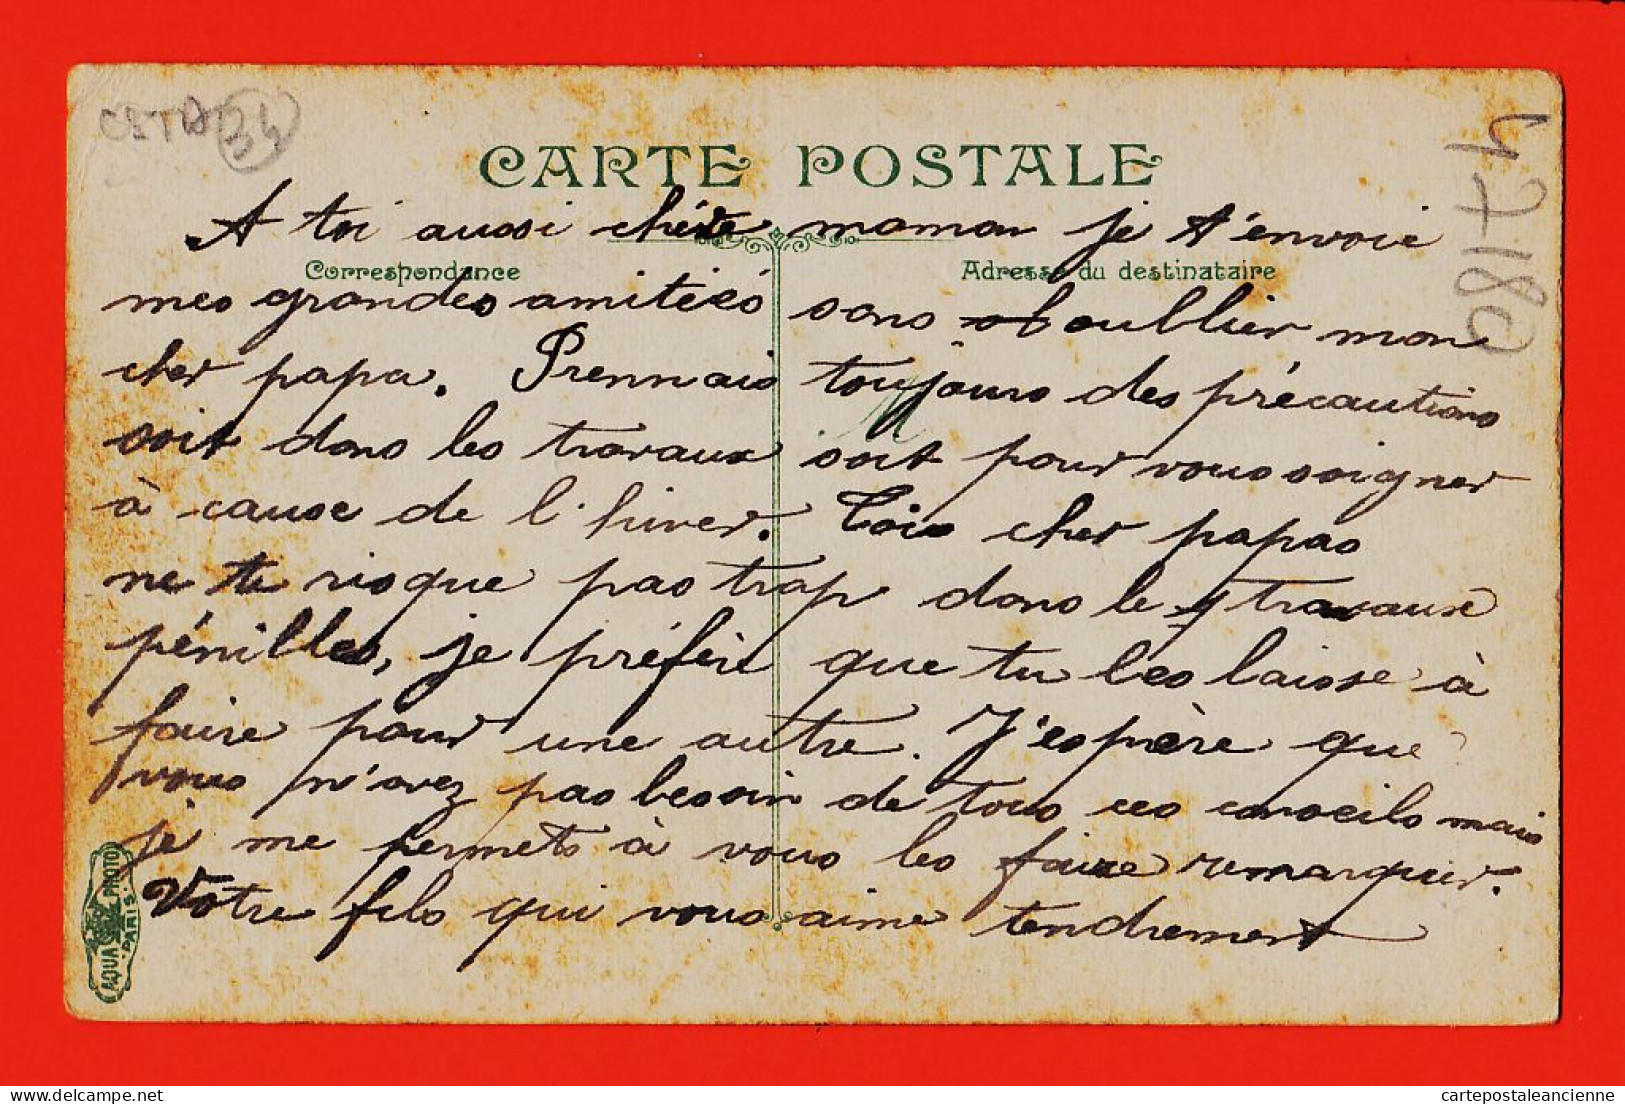 CETA 34
47180
CARTE POSTALE
A toi aussi chère maman je t'envoie
Correspondance
Adresse du destinataire
mes grandes amitiés sans oublier mon
cher papa. Prennais toujours des précautions
soit dans les travaux soit pour vous soigner
à cause de l'hiver. Tois cher papas
ne te risque pas trop dans le travaux
pénilles, je préfère que tu les laisse à
faire pour une autre. J'espère que
vous n'avez pas besoin de tous ces conseils mais
je me permets à vous les faire remarquer.
Votre fils qui vous aime tendrement
AQUA PHOTO
PARIS
Delcampe.net
cartepostaleancienne